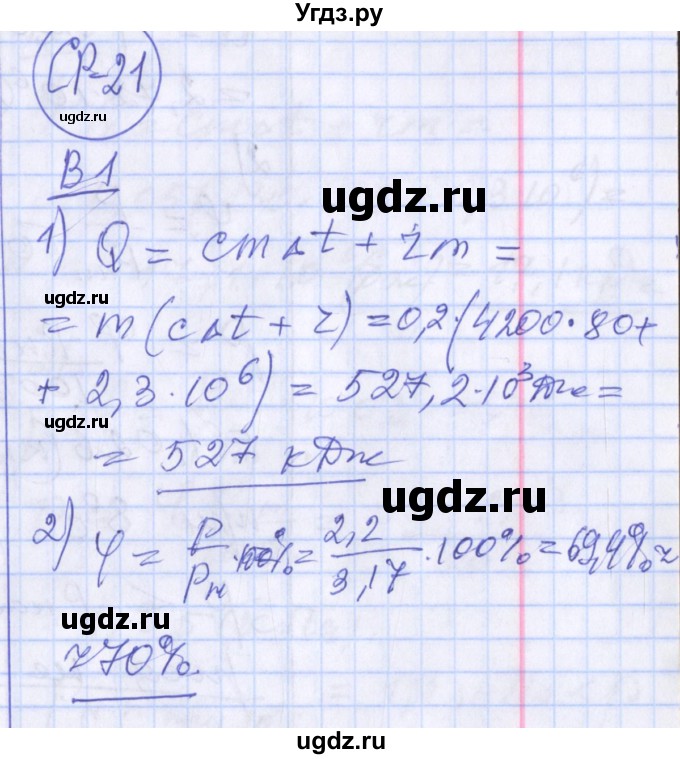 Угдз.ру
СР-21
ugdz.ru
В1
ugdz.ru
1) Q = cmΔt + rm =
ugdz.ru
= m(cΔt + r) = 0,2·(4200·80+
+ 2,3·10⁶) = 527,2·10³Дж =
ugdz.ru
= 527 кДж
ugdz.ru
2) φ = P/Pн ·100% = 2,2/3,17 ·100% = 69,4% ≈
ugdz.ru
≈70%.
ugdz.ru
ugdz.ru